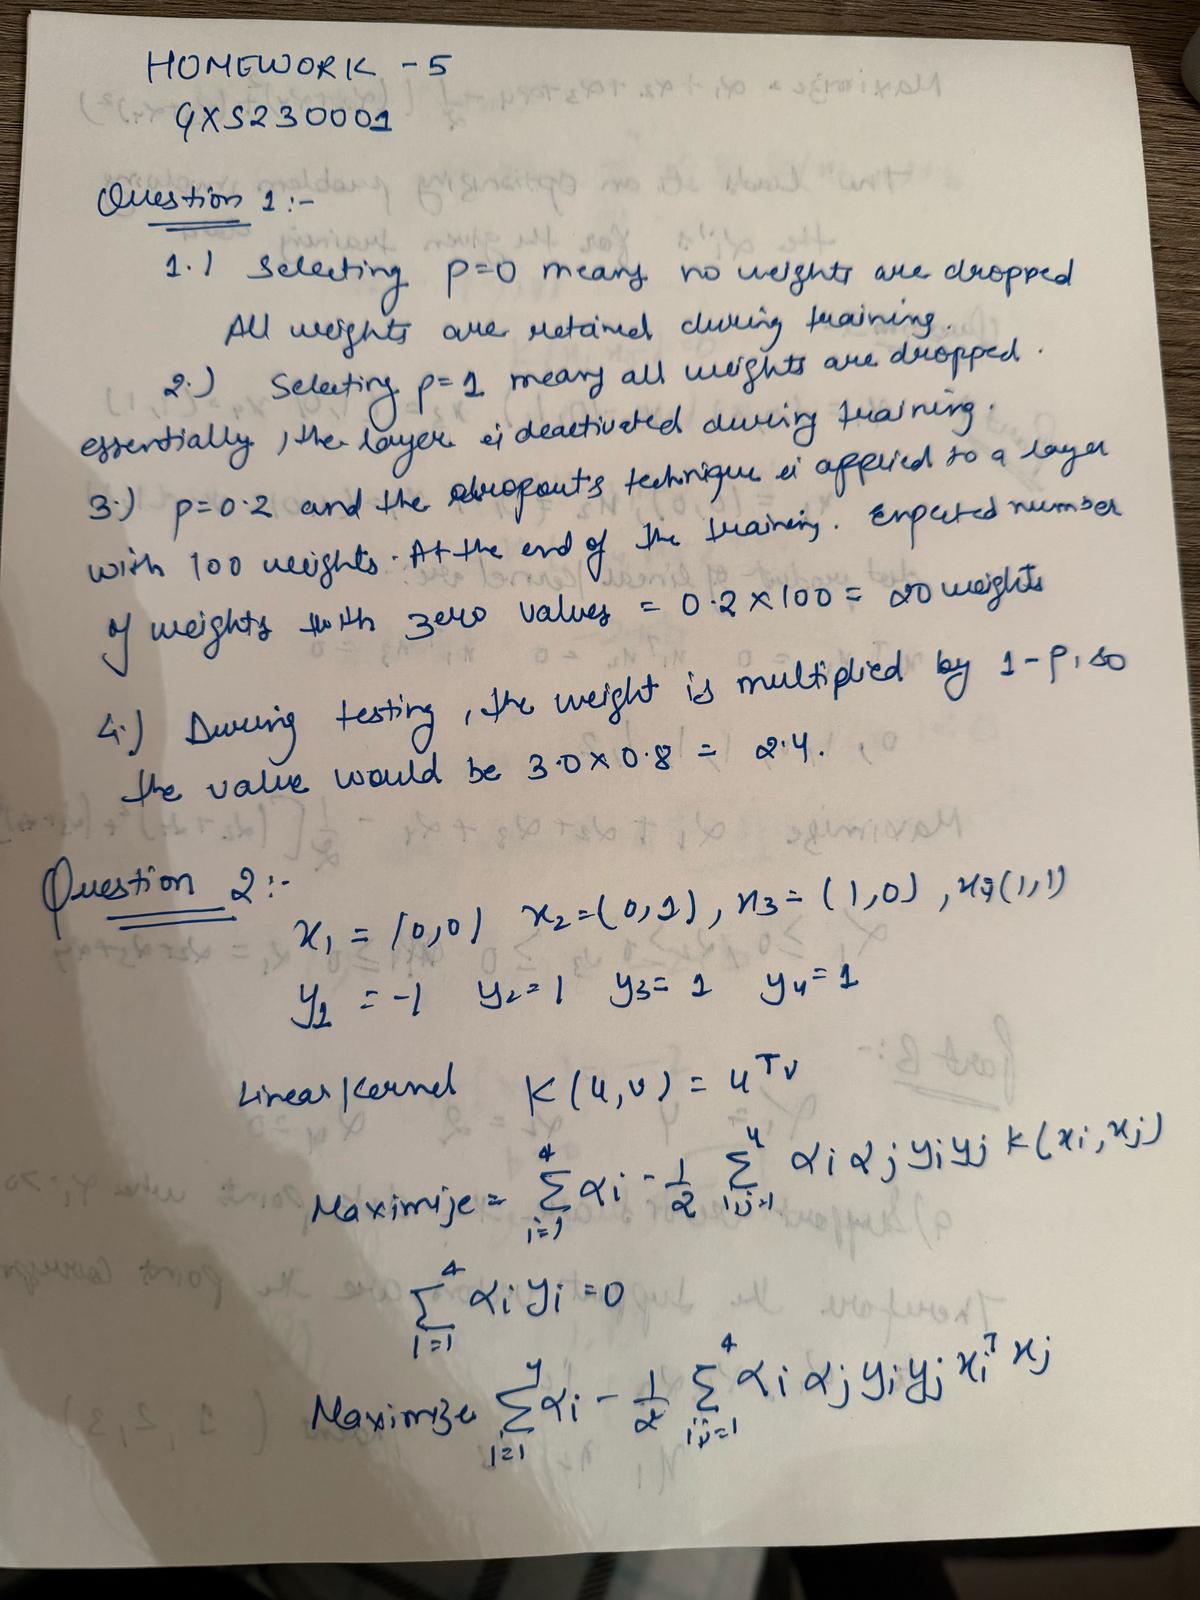 HOMEWORK - 5
GXS230001
Question 1:-
1.) Selecting p=0 means no weights are dropped
All weights are retained during training.
2.) Selecting p=1 means all weights are dropped.
essentially, the layer is deactivated during training.
3.) p=0.2 and the dropouts technique is applied to a layer
with 100 weights. At the end of the training. Expected number
of weights with zero values = 0.2 × 100 = 20 weights
4.) During testing, the weight is multiplied by 1-p, so
the value would be 3.0 × 0.8 = 2.4.
Question 2:-
x₁ = (0,0) x₂=(0,1), x₃=(1,0), x₄=(1,1)
y₁ = -1 y₂=1 y₃=1 y₄=1
Linear Kernel K(u,v) = uᵀv
Maximize = ∑_{i=1}^{4} αi - 1/2 ∑_{i,j=1}^{4} αi αj yi yj K(xi, xj)
∑_{i=1}^{4} αi yi = 0
Maximize ∑_{i=1}^{4} αi - 1/2 ∑_{i,j=1}^{4} αi αj yi yj xiᵀ xj